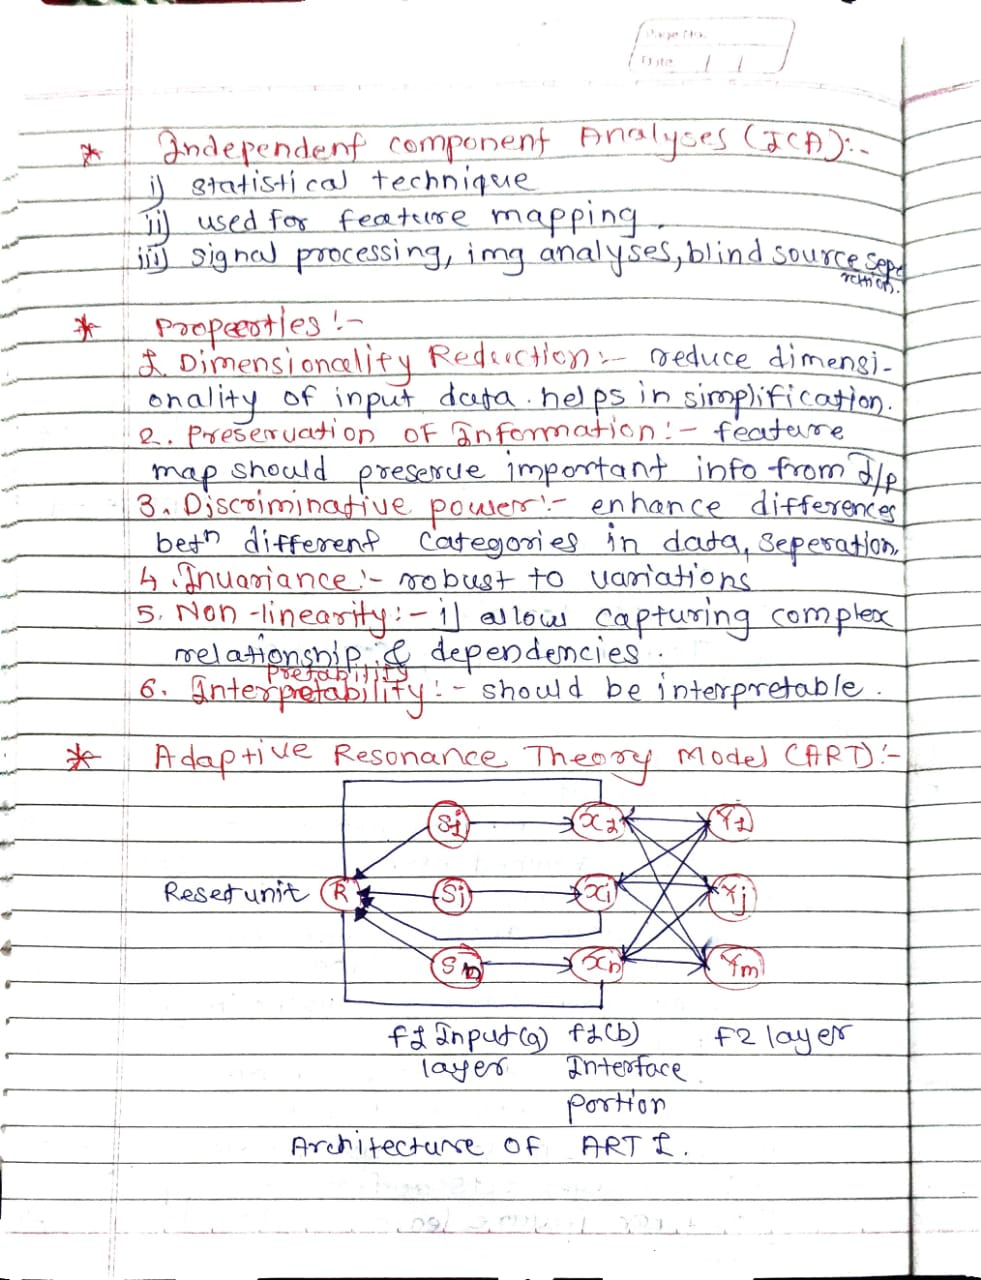 Page No.
Date / /
* Independent component Analyses (ICA):-
i) statistical technique
ii) used for feature mapping.
iii) signal processing, img analyses, blind source sepe
ration.
* Propeerties :-
1. Dimensionality Reduction :- reduce dimensi-
onality of input data. helps in simplification.
2. Preservation of Information :- feature
map should preserve important info from I/p
3. Discriminative power :- enhance differences
betn different categories in data, seperation,
4. Invariance :- robust to variations
5. Non-linearity :- it allows capturing complex
relationship & dependencies.
pretability
6. Interpretability :- should be interpretable.
* Adaptive Resonance Theory Model (ART) :-
S1 X1 Y1
Reset unit R Si Xi Yj
Sn Xn Ym
f1 Input(a) f1(b) f2 layer
layer Interface
portion
Architecture of ART 1.